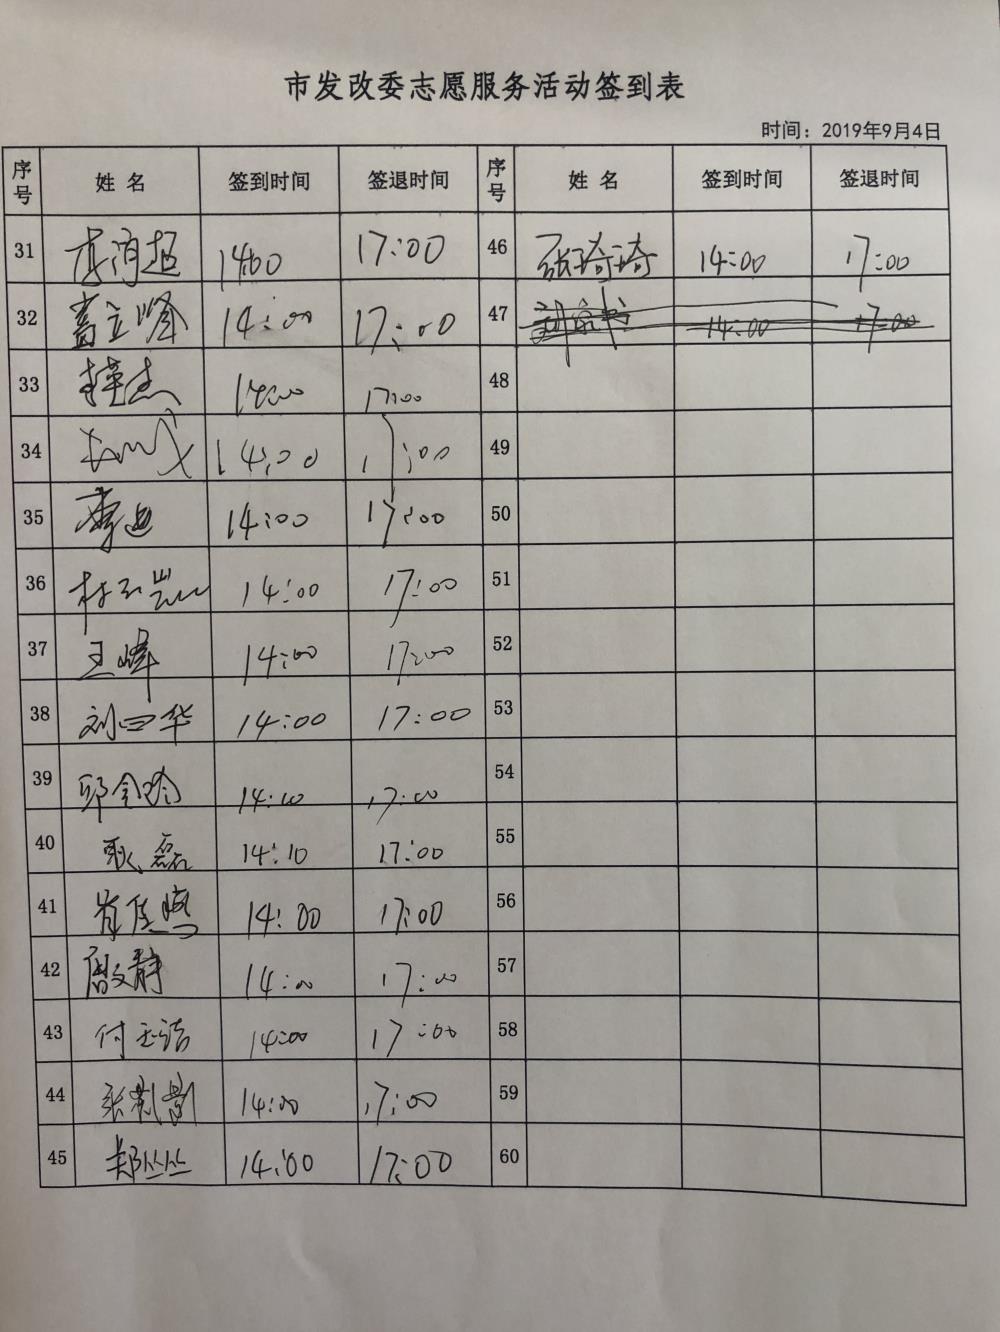 市发改委志愿服务活动签到表
时间：2019年9月4日
序号 姓 名 签到时间 签退时间 序号 姓 名 签到时间 签退时间
31 14:00 17:00 46 张琦琦 14:00 17:00
32 14:00 17:00 47 14:00 17:00
33 14:00 17:00 48
34 14:00 17:00 49
35 14:00 17:00 50
36 14:00 17:00 51
37 王峰 14:00 17:00 52
38 刘四华 14:00 17:00 53
39 邱金玲 14:10 17:00 54
40 耿磊 14:10 17:00 55
41 14:00 17:00 56
42 殷文静 14:00 17:00 57
43 付玉洁 14:00 17:00 58
44 14:00 17:00 59
45 郑丝丝 14:00 17:00 60